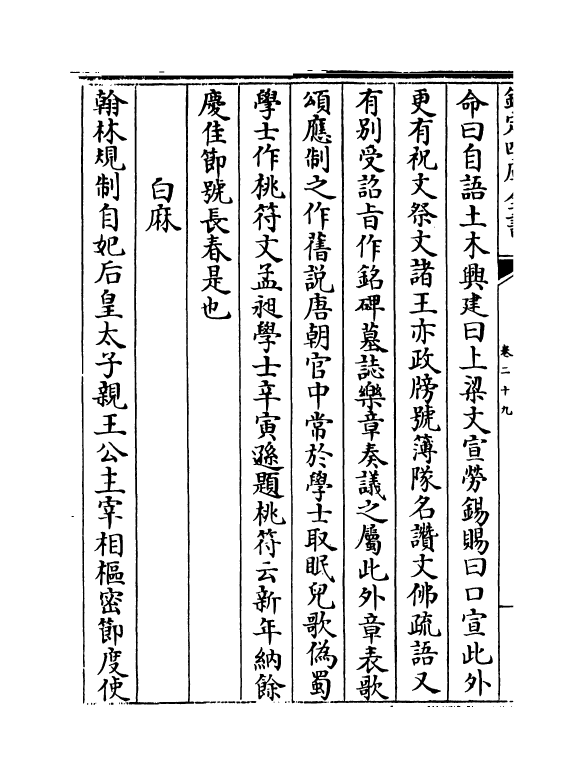 欽定四庫全書
卷二十九
命曰自語土木興建曰上梁文宣勞錫賜曰口宣此外
更有祝文祭文諸王亦政牓號簿隊名讚文佛疏語又
有别受詔旨作銘碑墓誌樂章奏議之屬此外章表歌
頌應制之作舊説唐朝官中常於學士取眠兒歌偽蜀
學士作桃符文孟昶學士辛寅遜題桃符云新年納餘
慶佳節號長春是也
白麻
翰林規制自妃后皇太子親王公主宰相樞密節度使